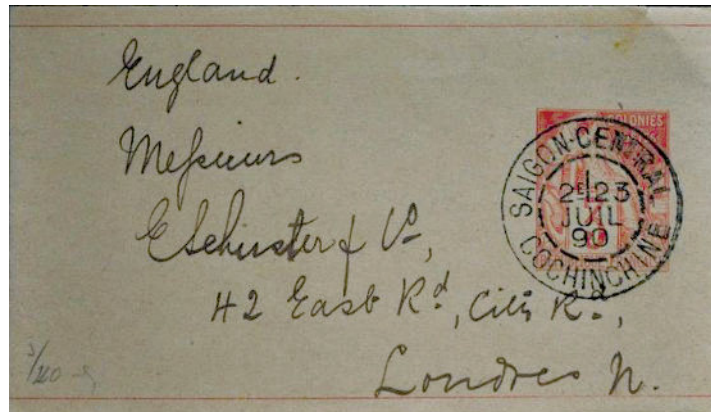 England.
Messieurs
E Schuster & Co,
42 East Rd, City Rd.,
Londres N.
COLONIES
SAIGON-CENTRAL
1
2E 23
JUIL
90
COCHINCHINE